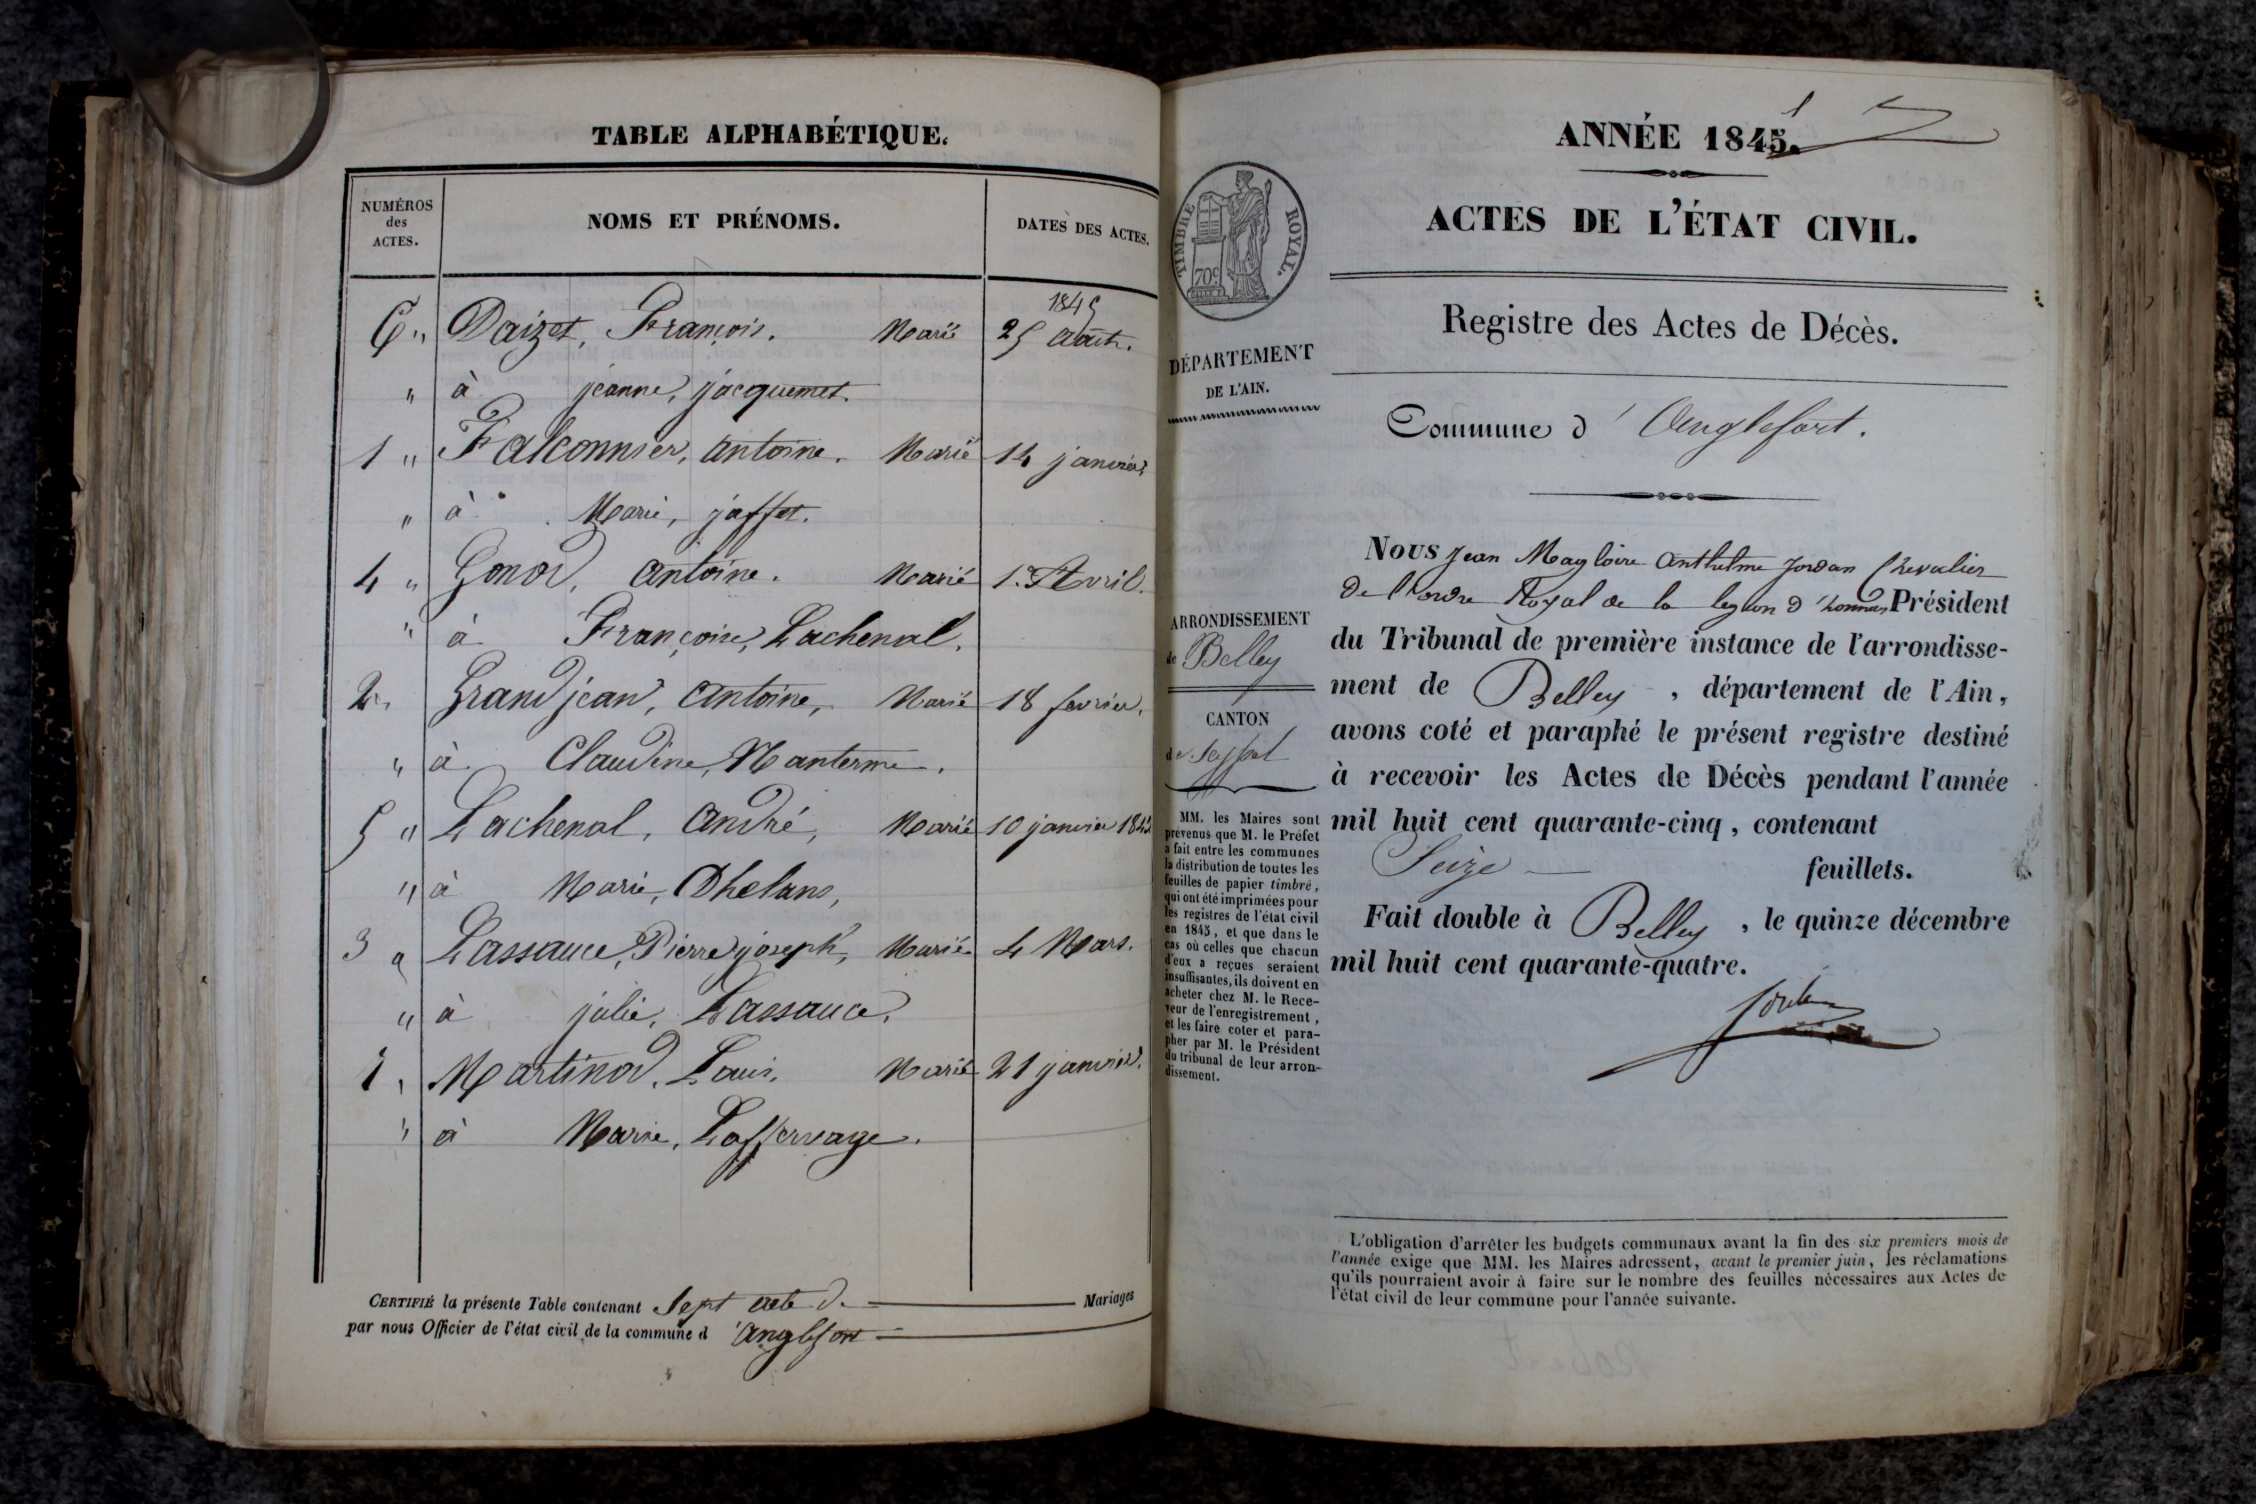 TABLE ALPHABÉTIQUE.
NUMÉROS
des
ACTES.
NOMS ET PRÉNOMS.
DATES DES ACTES.
1845
6 " Daizet, François. Marié 25 août.
" à jeanne, jacquemet.
1 " Falconnier, antoine. Marié 14 janvier
" à Marie, jaffet.
4 " Gonod, antoine. Marié 1.er Avril.
" à Françoise, Lachenal.
2 " Grandjean, antoine, Marié 18 fevrier.
" à Claudine, Manterme.
5 " Lachenal, andré, Marié 10 janvier
" à Marie, Dhelans,
3 " Lassauce, Pierre joseph, Marié 4 Mars.
" à julie, Lassauce.
Martinod, Louis. Marié 21 janvier.
" à Marie, Lafferrage.
CERTIFIÉ la présente Table contenant Sept acte d. Mariages
par nous Officier de l'état civil de la commune d 'anglefort
ANNÉE 1845.
TIMBRE ROYAL.
70c
ACTES DE L'ÉTAT CIVIL.
Registre des Actes de Décès.
DÉPARTEMENT
DE L'AIN.
Commune d' Anglefort.
Nous Jean Magloire Anthelme Jordan Chevalier
de l'ordre Royal de la legion d'honneur Président
du Tribunal de première instance de l'arrondisse-
ment de Belley, département de l'Ain,
avons coté et paraphé le présent registre destiné
à recevoir les Actes de Décès pendant l'année
mil huit cent quarante-cinq, contenant
Seize feuillets.
Fait double à Belley, le quinze décembre
mil huit cent quarante-quatre.
Jordan
ARRONDISSEMENT
de Belley
CANTON
de Seyssel
MM. les Maires sont
prévenus que M. le Préfet
a fait entre les communes
la distribution de toutes les
feuilles de papier timbré,
qui ont été imprimées pour
les registres de l'état civil
en 1845, et que dans le
cas où celles que chacun
d'eux a reçues seraient
insuffisantes, ils doivent en
acheter chez M. le Rece-
veur de l'enregistrement,
et les faire coter et para-
pher par M. le Président
du tribunal de leur arron-
dissement.
L'obligation d'arrêter les budgets communaux avant la fin des six premiers mois de
l'année exige que MM. les Maires adressent, avant le premier juin, les réclamations
qu'ils pourraient avoir à faire sur le nombre des feuilles nécessaires aux Actes de
l'état civil de leur commune pour l'année suivante.